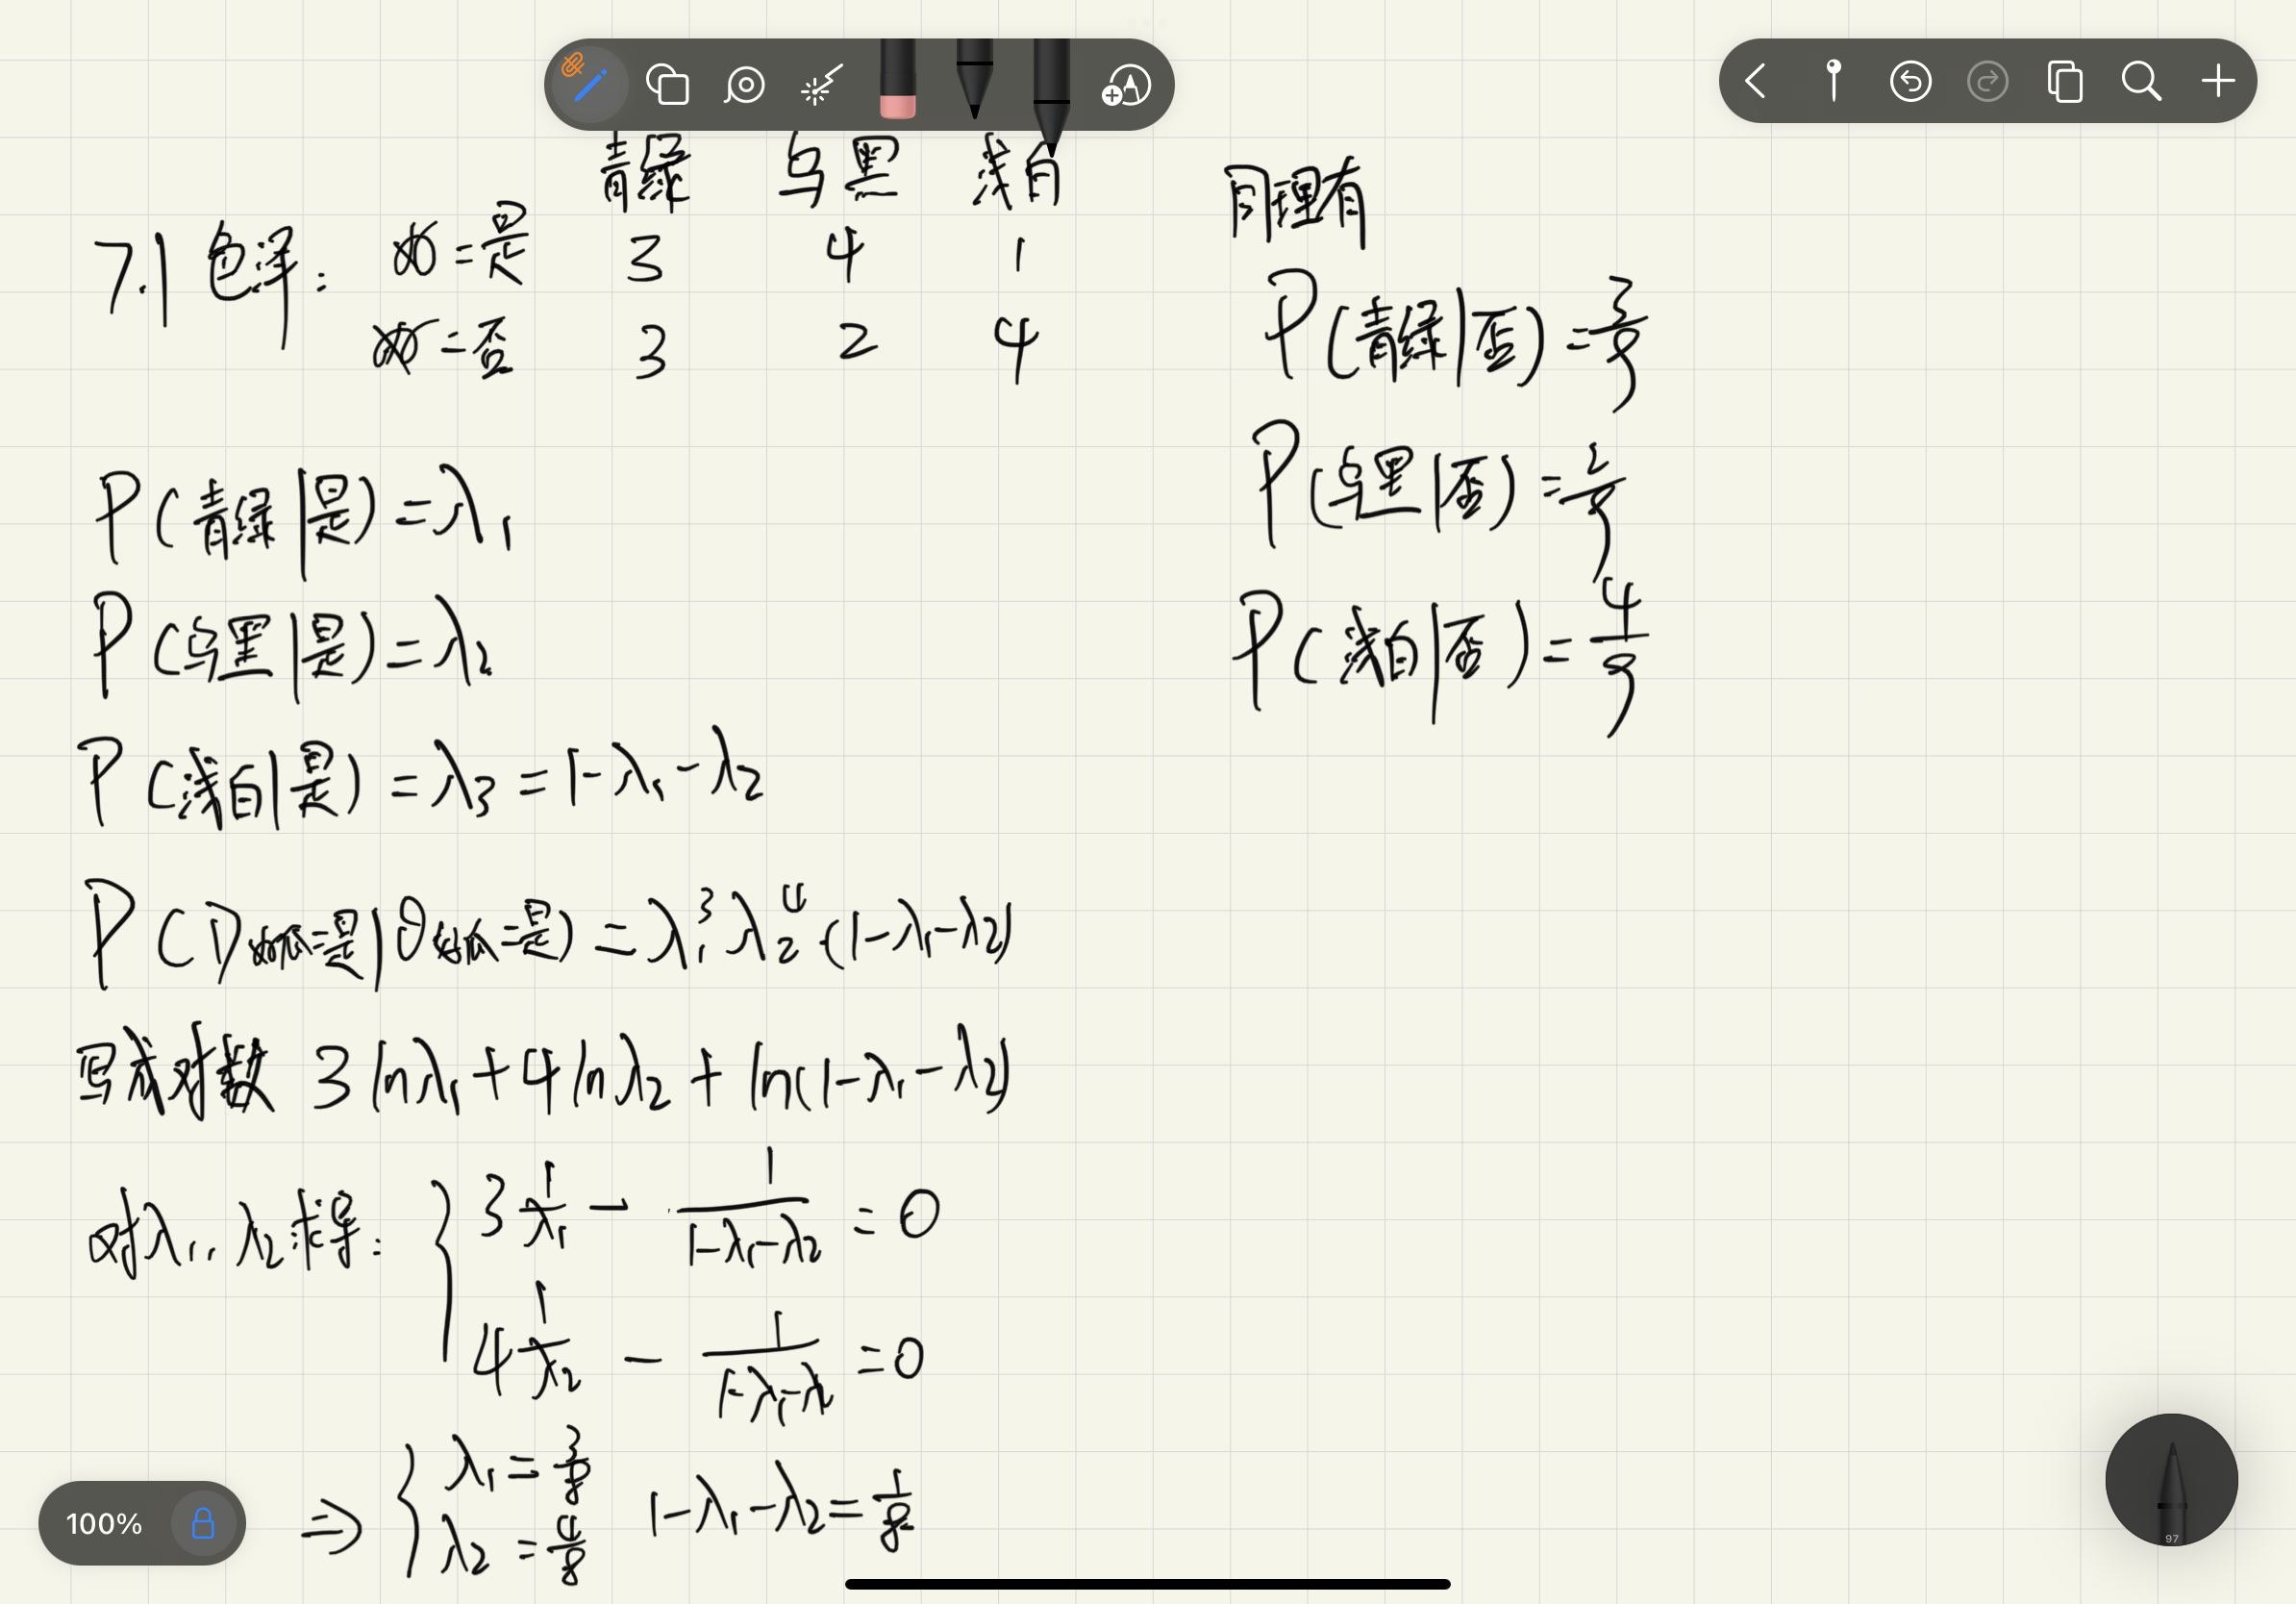 青绿 乌黑 浅白
7.1 色泽: 好=是 3 4 1
好=否 3 2 4
P(青绿|是)=λ₁
P(乌黑|是)=λ₂
P(浅白|是)=λ₃=1-λ₁-λ₂
P(D好瓜=是|θ好瓜=是)=λ₁³λ₂⁴·(1-λ₁-λ₂)
写成对数 3lnλ₁+4lnλ₂+ln(1-λ₁-λ₂)
对λ₁, λ₂求导: { 3 1/λ₁ - 1/(1-λ₁-λ₂) =0
4 1/λ₂ - 1/(1-λ₁-λ₂) =0
⇒ { λ₁=3/8
λ₂=4/8 1-λ₁-λ₂=1/8
同理有
P(青绿|否)=3/9
P(乌黑|否)=2/9
P(浅白|否)=4/9
100%
97